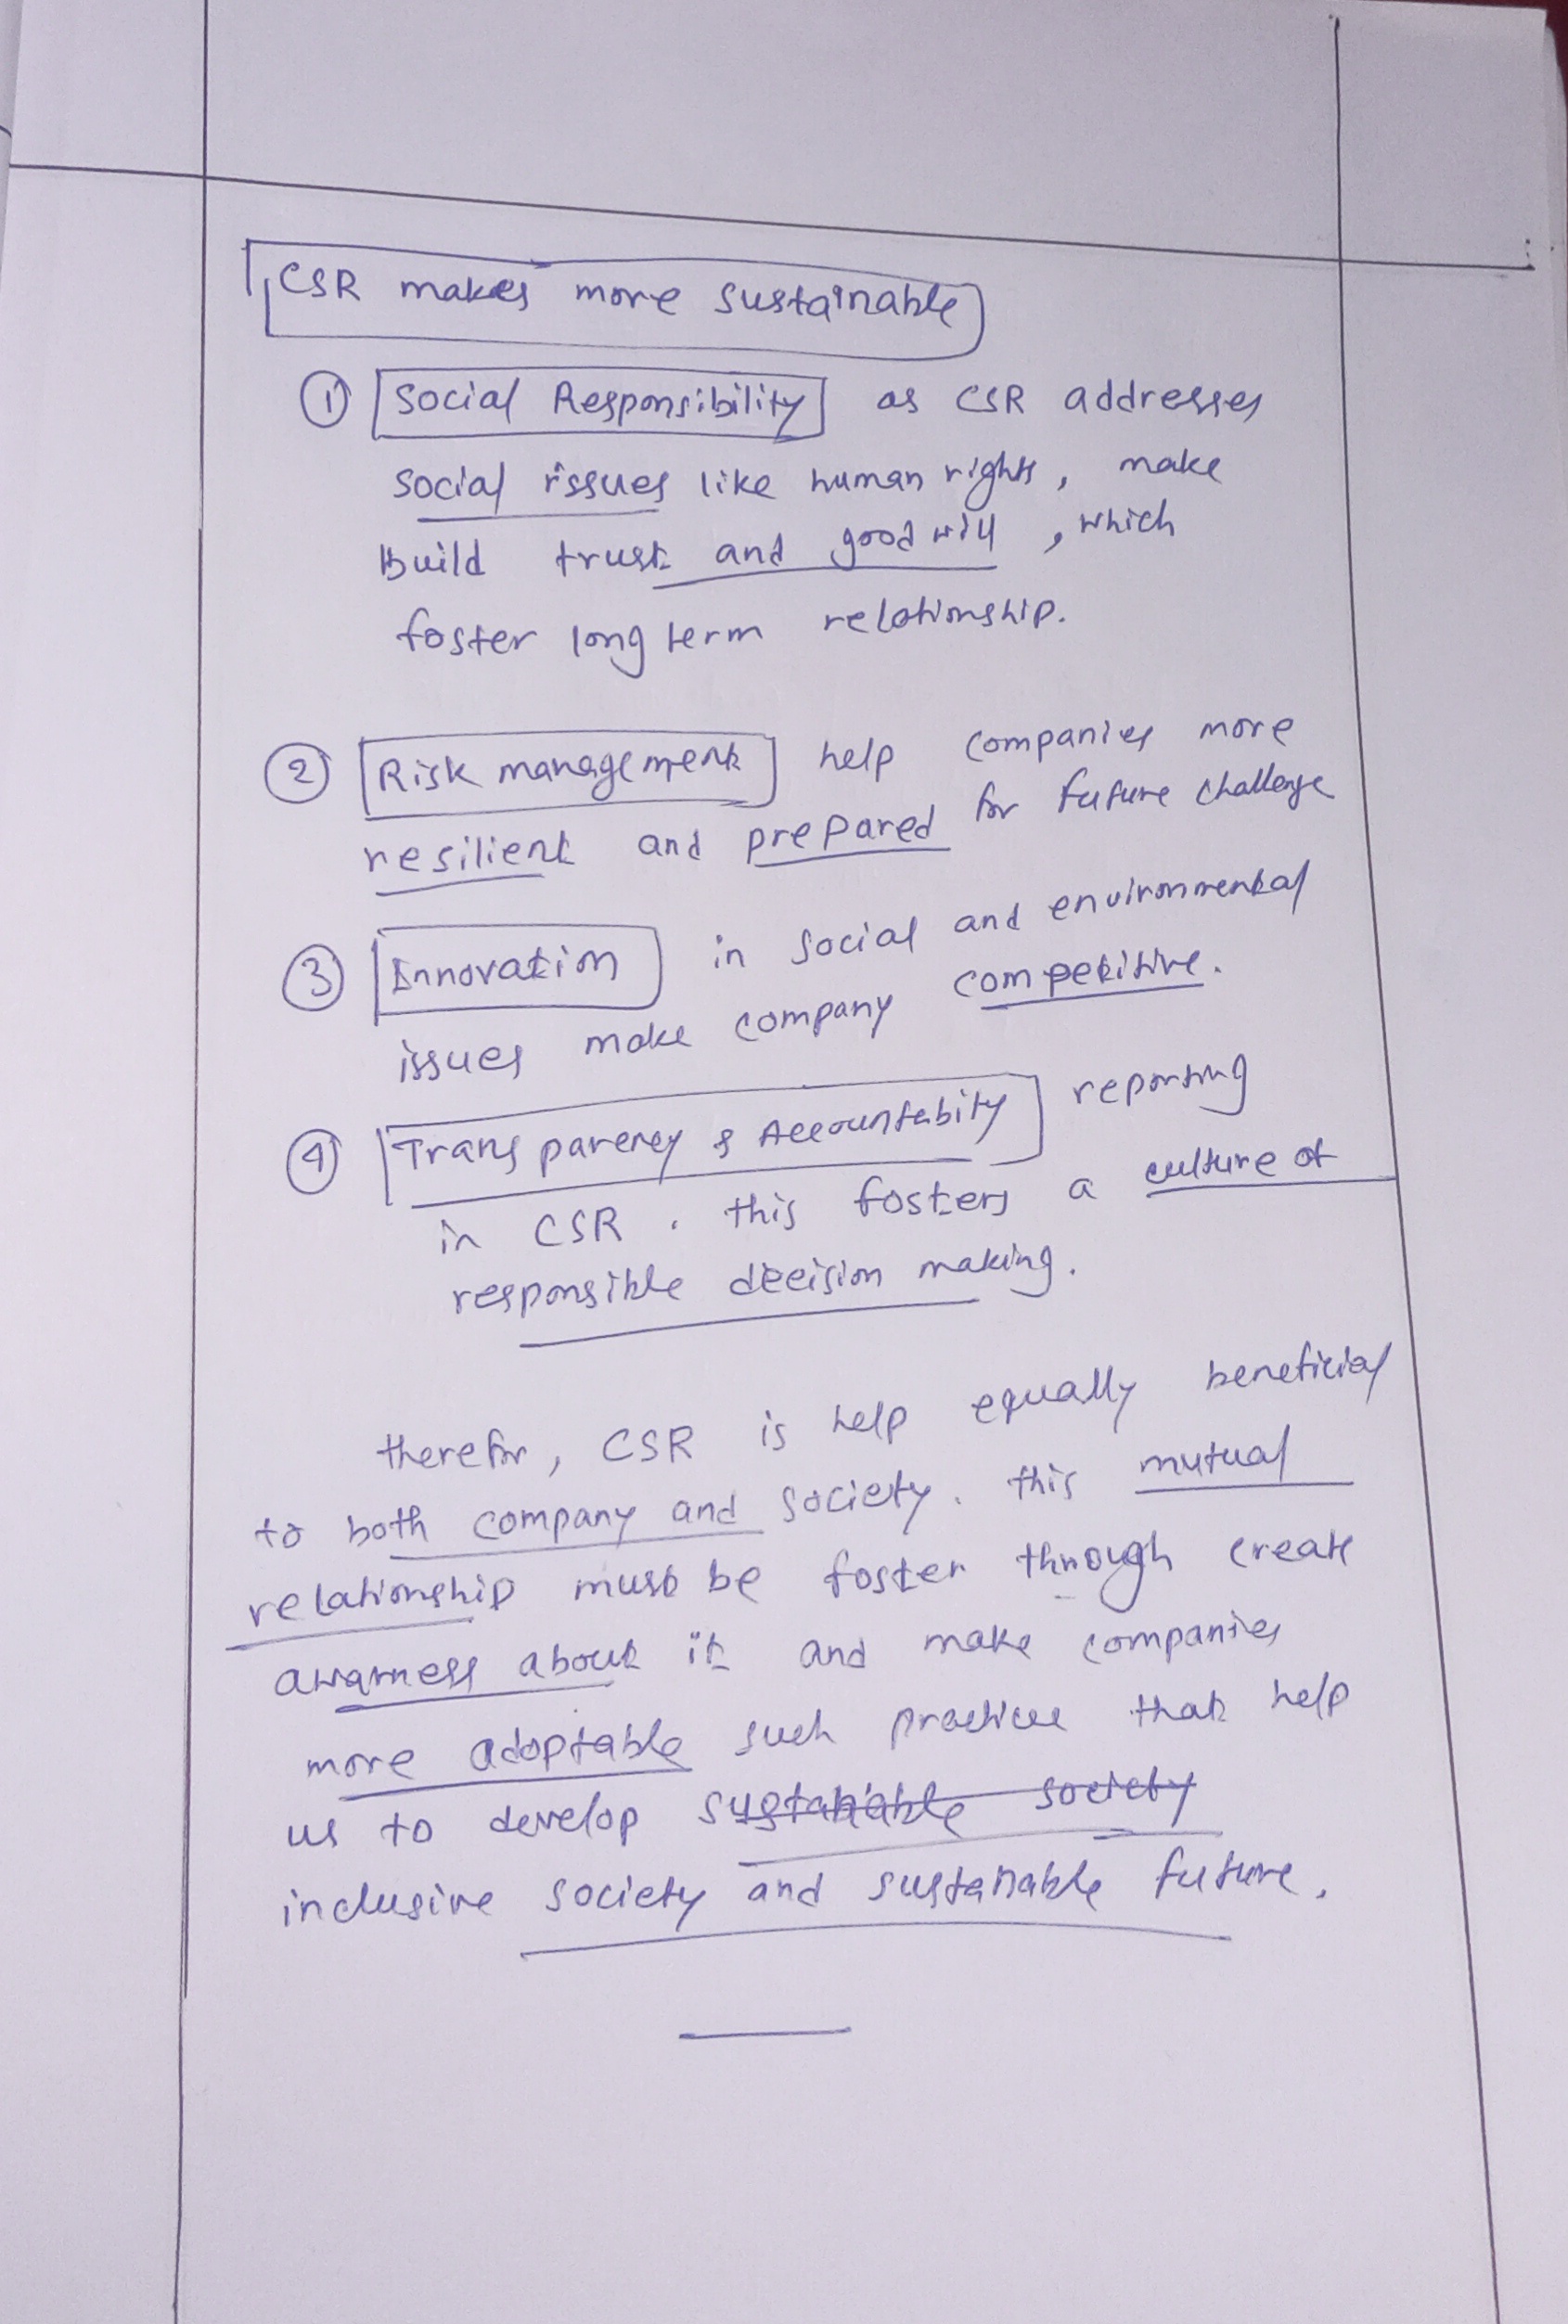 CSR makes more sustainable
① Social Responsibility as CSR addresses
social issues like human rights, make
build trust and good will, which
foster long term relationship.
② Risk management help companies more
resilient and prepared for future challenge
③ Innovation in social and environmental
issues make company competitive.
④ Transparency & Accountabity reporting
in CSR. this fosters a culture of
responsible decision making.
therefor, CSR is help equally beneficial
to both company and society. this mutual
relationship must be foster through create
awarness about it and make companies
more adoptable such practice that help
us to develop sustainable society
inclusive society and sustanable future.